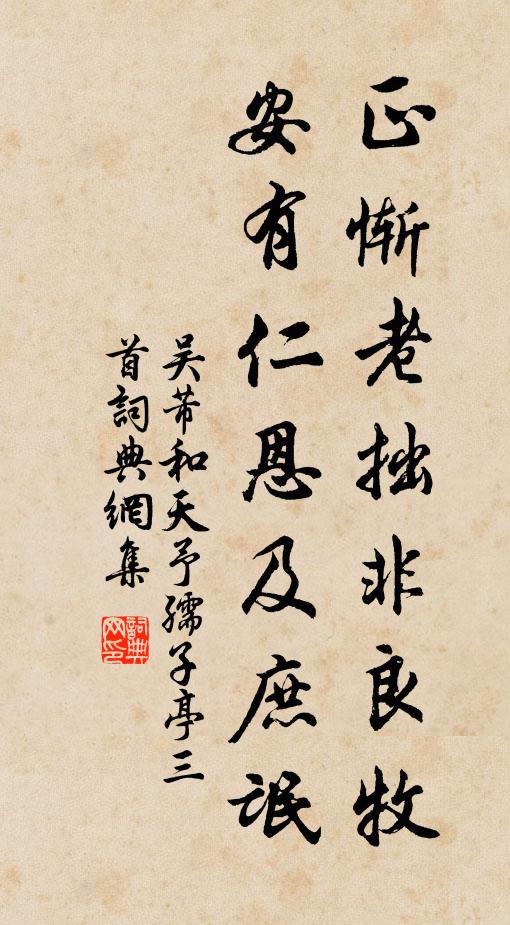 正慚老拙非良牧
安有仁恩及庶氓
吴芾和天予孺子亭三
首詞典網集
詞典網印